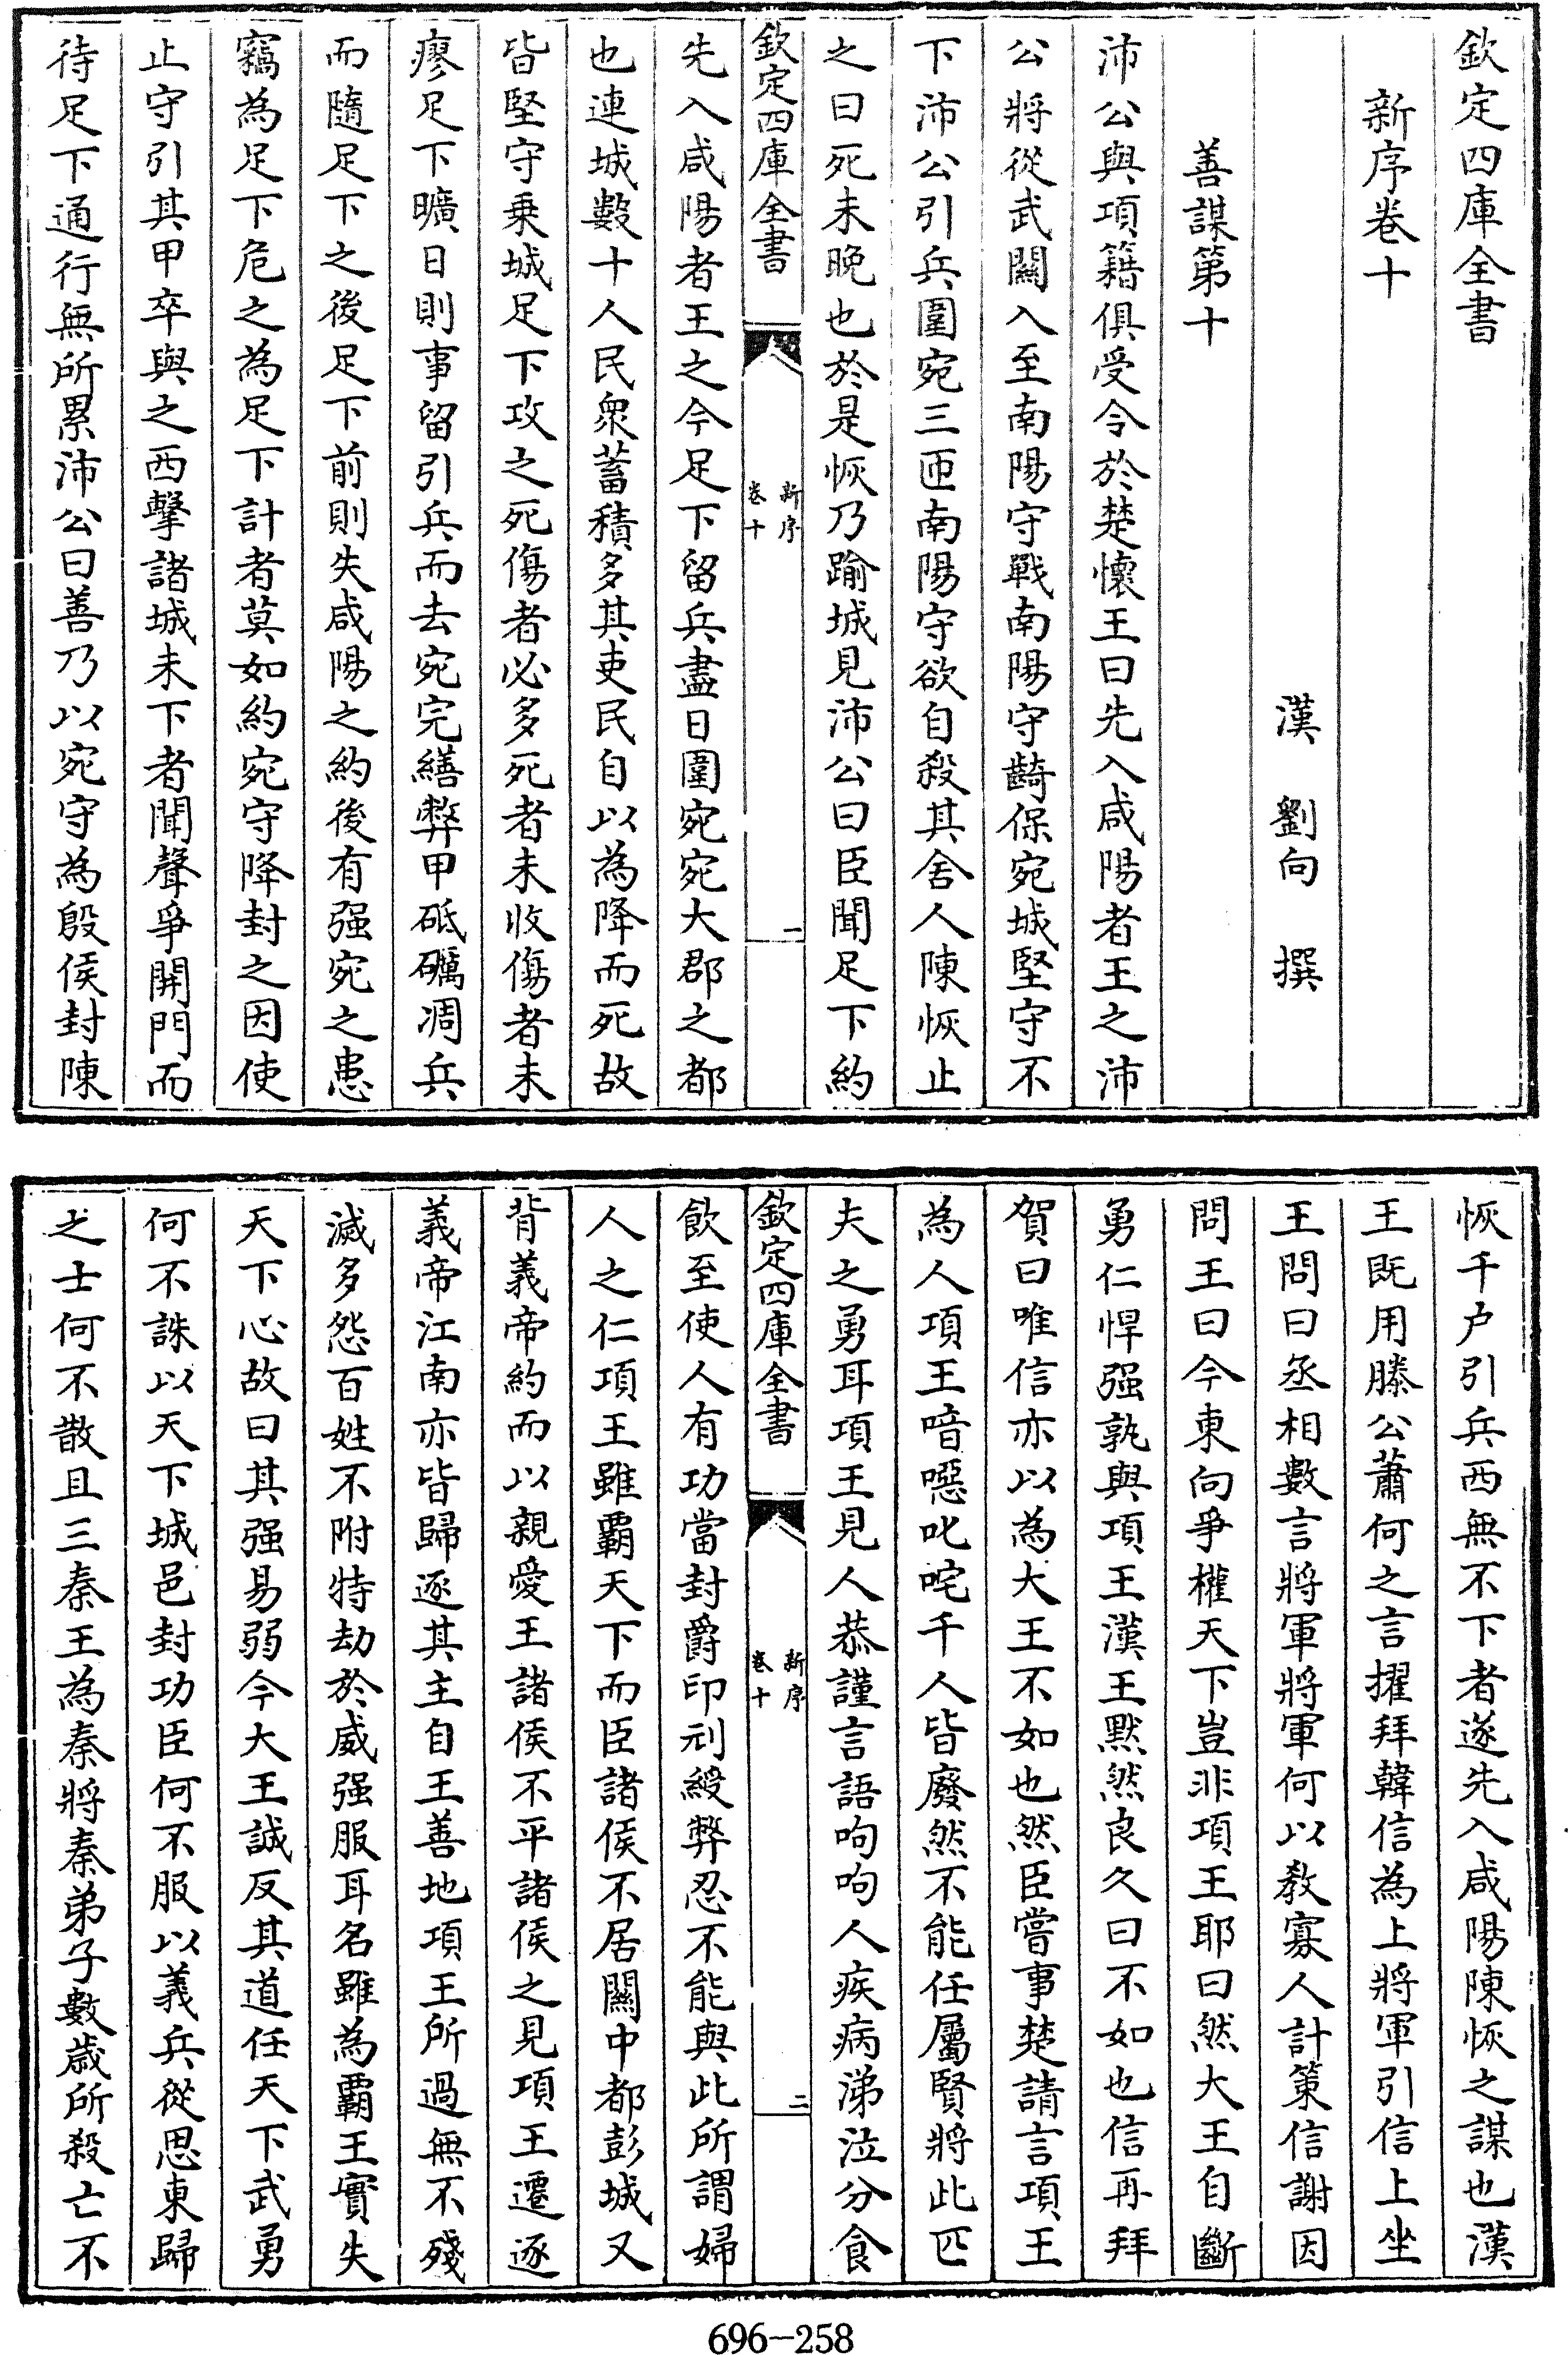 欽定四庫全書
新序卷十
漢　劉向　撰
善謀第十
沛公與項籍俱受令於楚懷王曰先入咸陽者王之沛
公將從武關入至南陽守戰南陽守齮保宛城堅守不
下沛公引兵圍宛三匝南陽守欲自殺其舍人陳恢止
之曰死未晚也於是恢乃踰城見沛公曰臣聞足下約
欽定四庫全書
新序
卷十
一
先入咸陽者王之今足下留兵盡日圍宛宛大郡之都
也連城數十人民衆蓄積多其吏民自以為降而死故
皆堅守乗城足下攻之死傷者必多死者未收傷者未
瘳足下曠日則事留引兵而去宛完繕弊甲砥礪凋兵
而隨足下之後足下前則失咸陽之約後有强宛之患
竊為足下危之為足下計者莫如約宛守降封之因使
止守引其甲卒與之西擊諸城未下者聞聲爭開門而
待足下通行無所累沛公曰善乃以宛守為殷侯封陳
恢千户引兵西無不下者遂先入咸陽陳恢之謀也漢
王既用滕公蕭何之言擢拜韓信為上將軍引信上坐
王問曰丞相數言將軍將軍何以教寡人計策信謝因
問王曰今東向爭權天下豈非項王耶曰然大王自斷
勇仁悍强孰與項王漢王默然良久曰不如也信再拜
賀曰唯信亦以為大王不如也然臣嘗事楚請言項王
為人項王喑噁叱咤千人皆廢然不能任屬賢將此匹
夫之勇耳項王見人恭謹言語呴呴人疾病涕泣分食
欽定四庫全書
新序
卷十
二
飲至使人有功當封爵印刓綬弊忍不能與此所謂婦
人之仁項王雖覇天下而臣諸侯不居關中都彭城又
背義帝約而以親愛王諸侯不平諸侯之見項王遷逐
義帝江南亦皆歸逐其主自王善地項王所過無不殘
滅多怨百姓不附特劫於威强服耳名雖為覇王實失
天下心故曰其强易弱今大王誠反其道任天下武勇
何不誅以天下城邑封功臣何不服以義兵從思東歸
之士何不散且三秦王為秦將秦弟子數歲所殺亡不
696-258